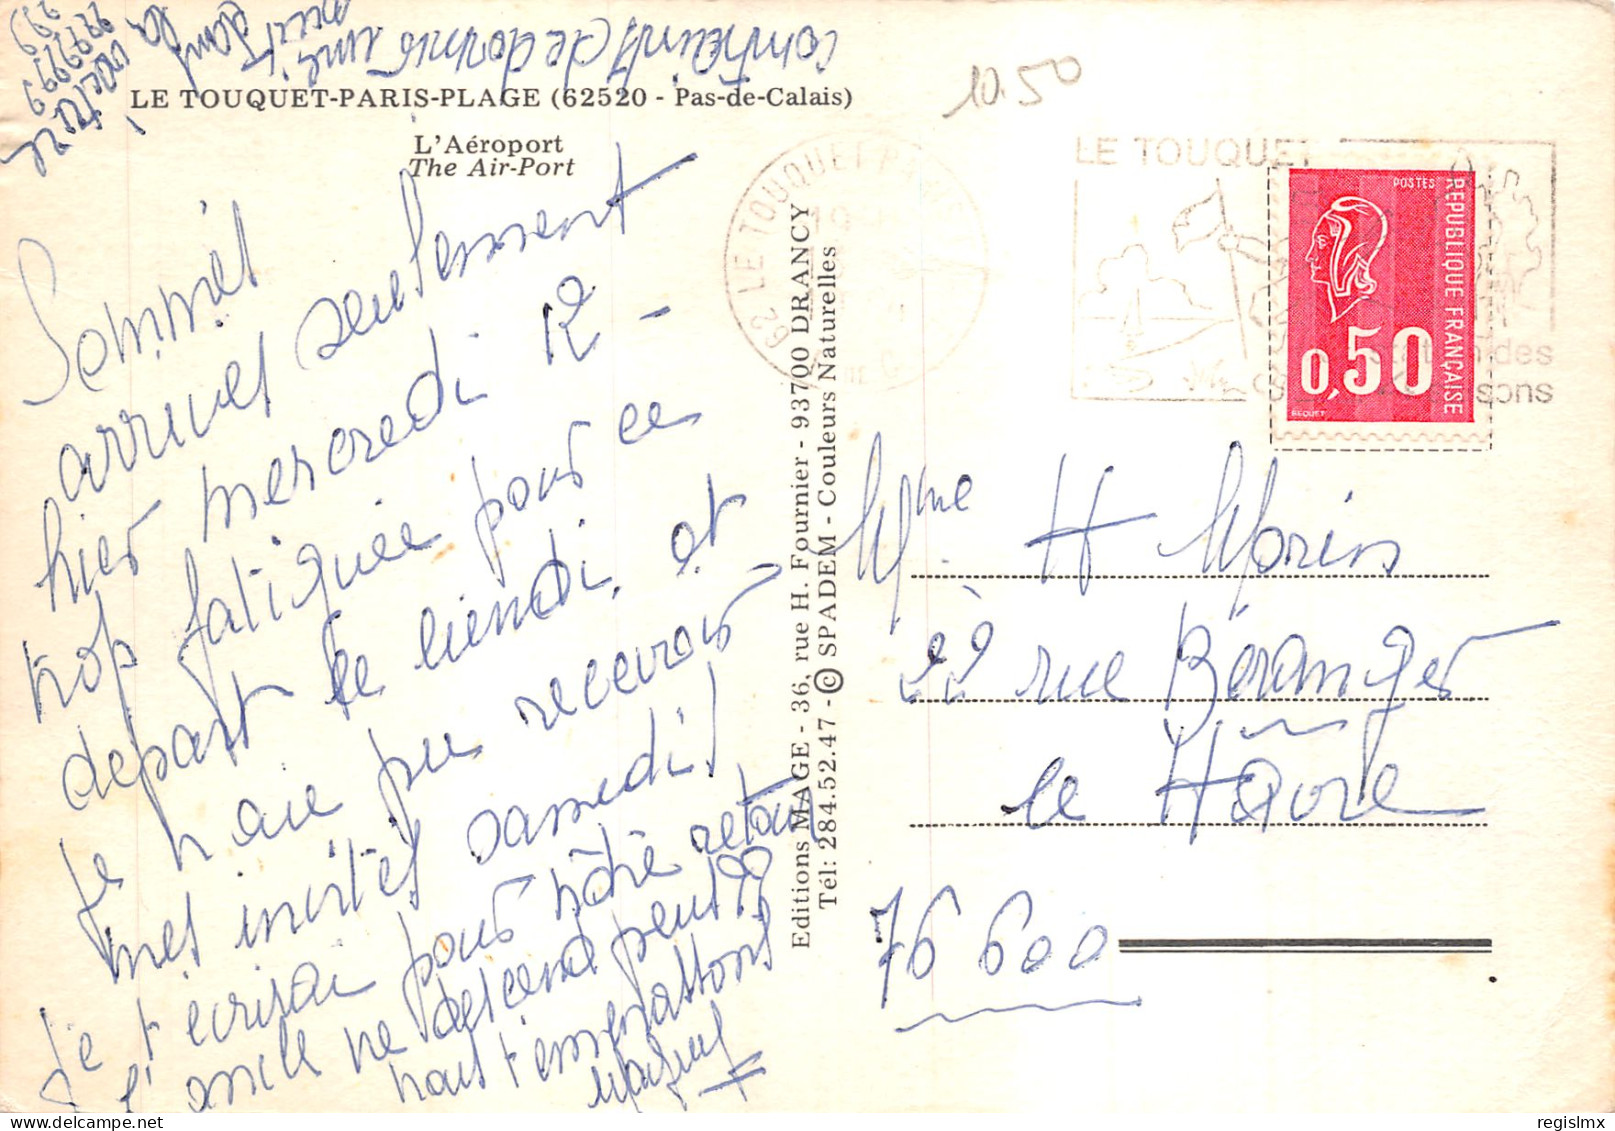 LE TOUQUET-PARIS-PLAGE (62520 - Pas-de-Calais)
L'Aéroport
The Air-Port
Sommes
arrivés seulement
hier mercredi 12 -
trop fatiguée pour ce
départ le lundi, et
Je n'aie pu recevoir
mes invités samedi!
Je t'écrirai pour nôtre retour
si oncle ne descend peut??
nous t'embrassons
contraints de dormir une
nuit dans la
voiture
99999999
Editions MAGE - 36, rue H. Fournier - 93700 DRANCY
Tél: 284.52.47 - © SPADEM - Couleurs Naturelles
10.50
62 LE TOUQUET PARIS
LE TOUQUET
des
sons
POSTES
REPUBLIQUE FRANÇAISE
0,50
BEQUET
Mme H Morin
22 rue Béranger
le Hâvre
76 600
regislmx